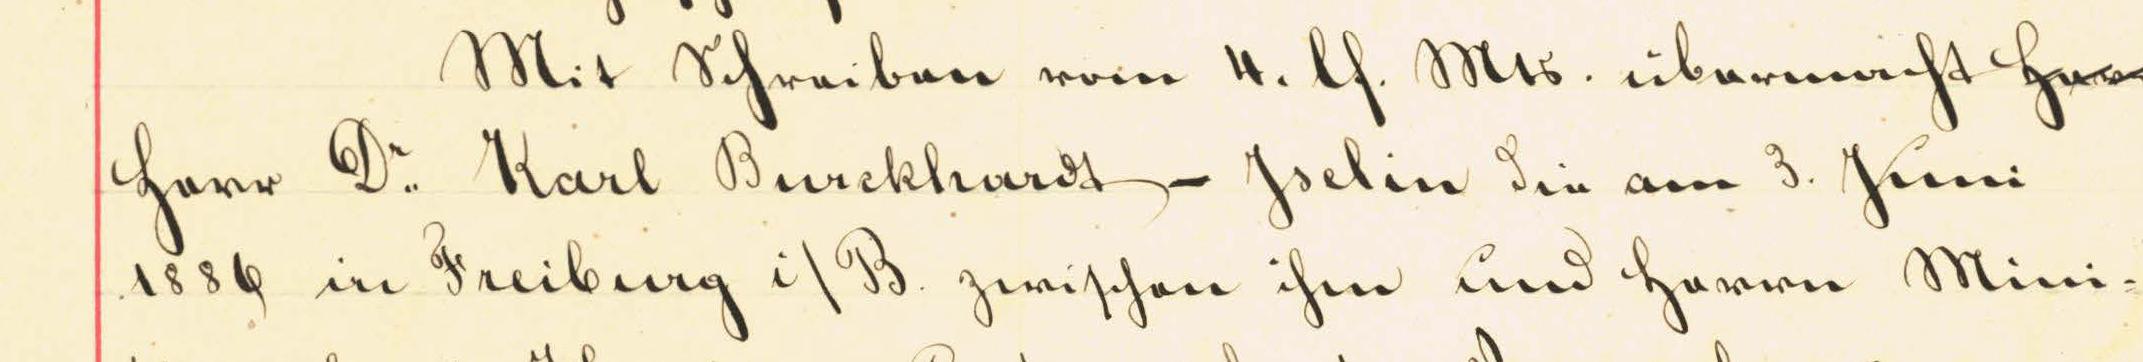 Mit Schreiben vom 4. lf. Mts. übermacht Herr
Herr Dr. Karl Burckhardt-Iselin die am 3. Juni
1886 in Freiburg i/B. zwischen ihm und Herrn Mini-